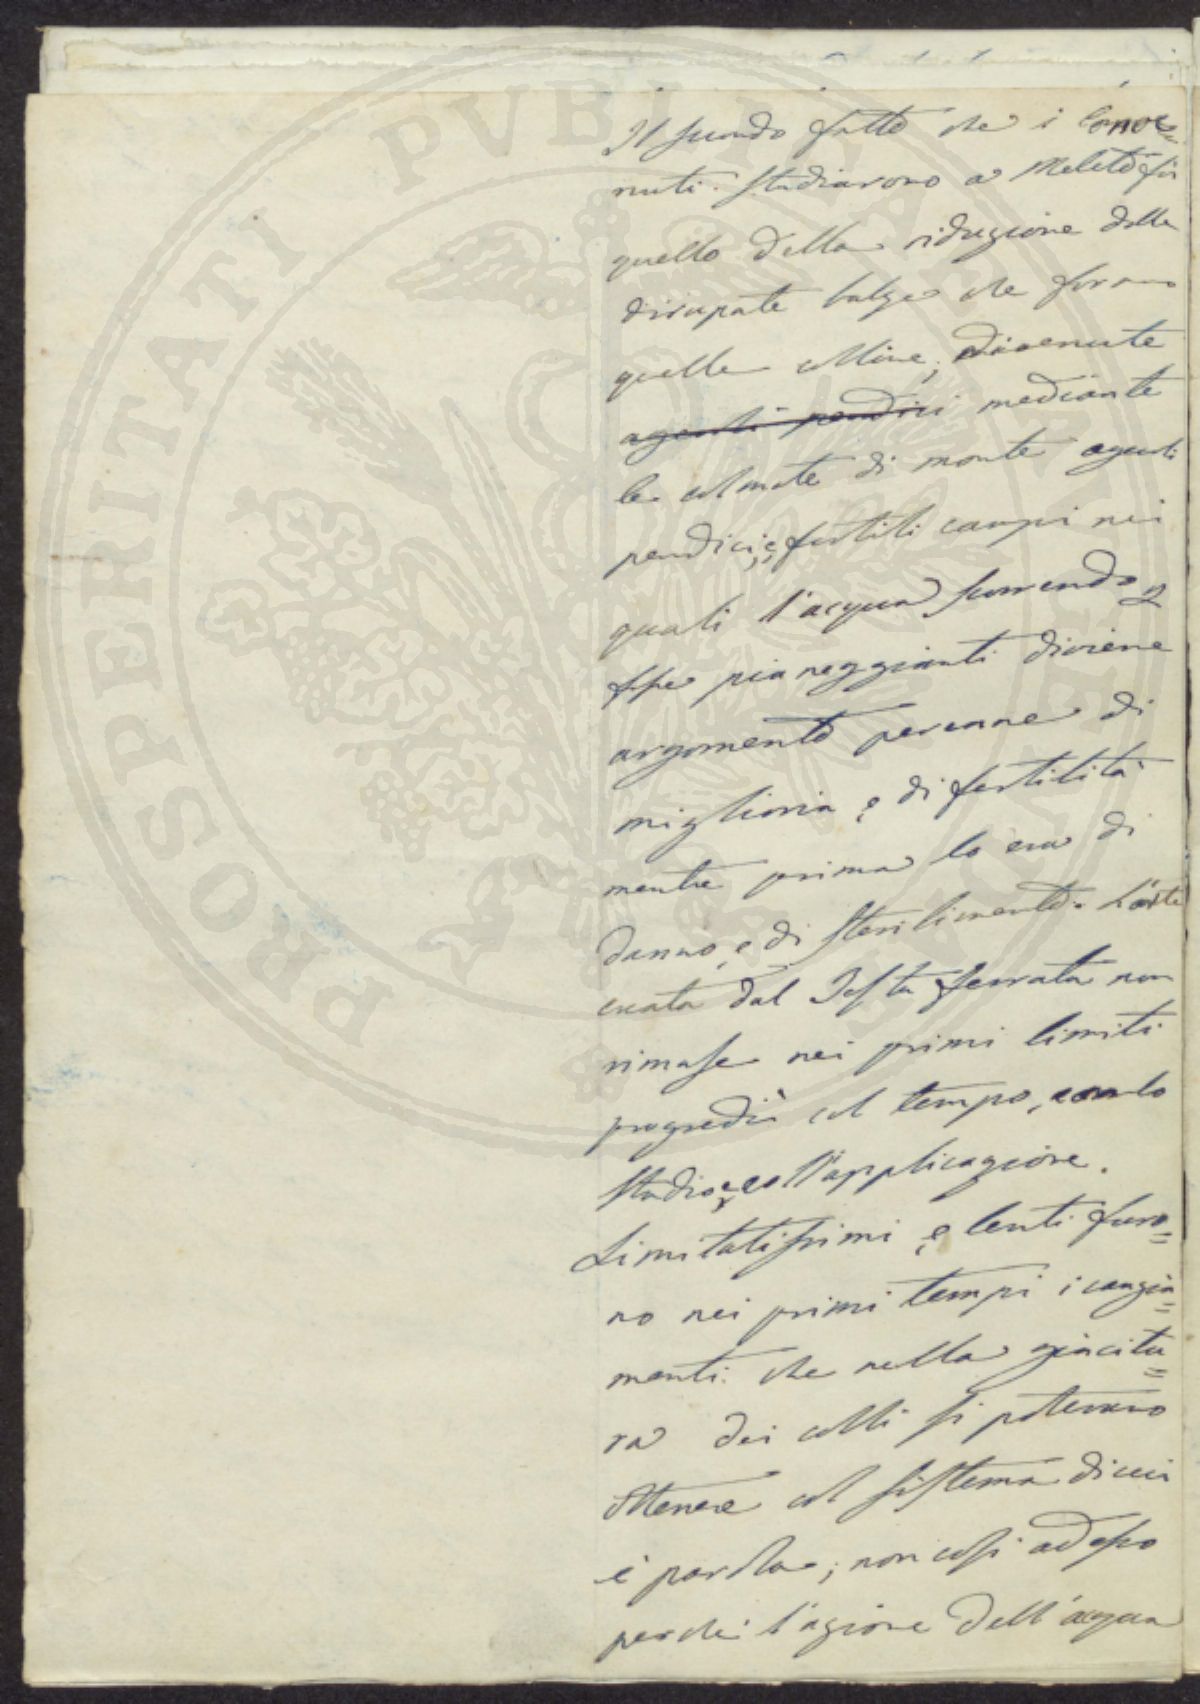 Il secondo fatto che i Conve-
nuti studiarono a Meleto fu
quello della riduzione delle
dirupate balze che forano
quelle colline, divenute
agevoli pendici mediante
le colmate di monte agevoli
pendici, e fertili campi nei
quali l'acqua scorrendo p
fosse pianeggianti diviene
argomento perenne di
miglioria, e di fertilità
mentre prima lo era di
danno, e di sterilimento. L'arte
creata dal Testaferrata non
rimase nei primi limiti
progredì col tempo, con lo
studio, e coll'applicazione.
Limitatissimi, e lenti furo=
no nei primi tempi i cangia=
menti che nella giacitu=
ra dei colli si potevano
ottenere col sistema di cui
è parola; non così adesso
perchè l'azione dell'acqua
PROSPERITATI PVBLICAE